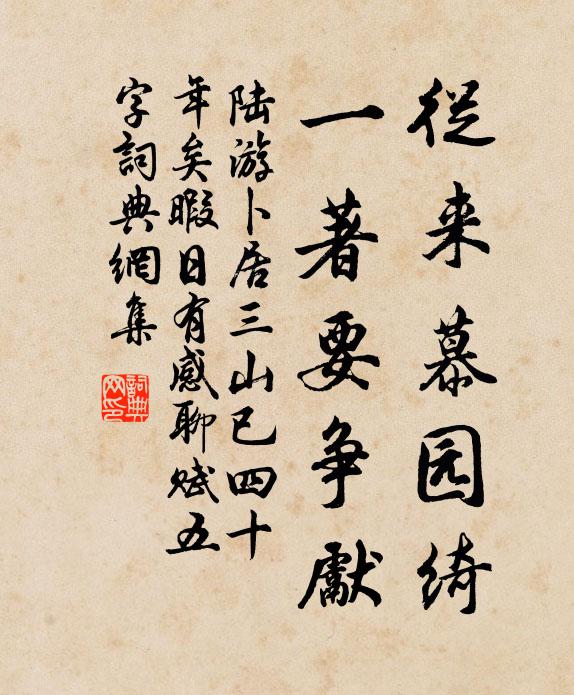 從来慕园绮
一著要争獻
陆游卜居三山已四十
年矣暇日有感聊赋五
字詞典網集
詞典网印